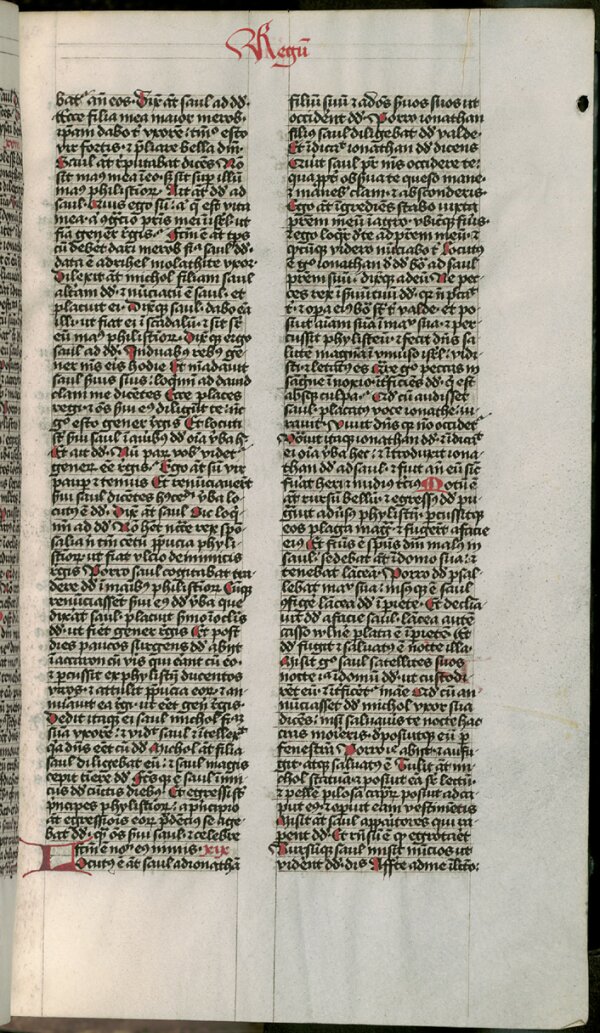 Regũ
bat᷑ añ eos · Dix̃ at̃ saul ad dd̃ ·
Ecce filia mea maior merob ·
ip̃am dabo t᷑ vxorẽ : tm̃o esto
vir fortis · ⁊ p̃liare bella dñi ·
Saul at̃ reputabat dicẽs No
sit manꝰ mea ĩ eo : sꝫ sit sup̱ illũ
manꝰ philistior᷑ · Ait at̃ dd̃ ad
saul · Quis ego sũ : aut q̃ est vita
mea · aut ꝯgtio pr̃is mei ĩ isrl̃ · ut
fiã gener regis · Ftm̃ ẽ at̃ tp̃s
cũ deb̃et dari merob fi᷑ · saul dd̃ ·
data ẽ adrihel molathite vxor ·
Dilexit at̃ michol filiam saul
alt̃am dd̃ · ⁊ nũciatũ ẽ saul · et
placuit ei · Dixitqꝫ saul · dabo eã
illi · ut fiat ei ĩ scãdalũ · ⁊ sit sr̃
eũ manꝰ philistior᷑ · Dix̃ qꝫ ergo
saul ad dd̃ · In duabꝰ rebꝰ ge
ner mẽs eis hodie Et mãdauit
saul seruis suis : loqm̃i ad dauid
clam me dicẽtes Ecce places
regi · ⁊ oẽs serui eiꝰ diligũt te : nc̃
gͦ esto gener regis Et locuti
st̃ serui saul ĩ auribꝰ dd̃ oĩa vb̃a hͦ ·
Et ait dd̃ · Nũ parũ vobis videt᷑
generũ ẽe regis · Ego at̃ sũ vir
paup̱ ⁊ tenuis Et renũciauerũt
serui saul dicẽtes hꝰcem̃ vb̃a lo
cutꝰ ẽ dd̃ · Dix̃ at̃ saul Sic loq̃
mĩ ad dd̃ · No het̃ ncc̃e rex spõ
salia ñ tm̃ cẽtũ p̃pucia phyli
stior᷑ · ut fiat vlcio de inimicis
regis Porro saul cogitabat tra
dere dd̃ ĩ manꝰ philistior᷑ Cũqꝫ
renũciasset serui eiꝰ dd̃ vb̃a que
dixat̃ saul · placuit sermo ĩ oclis
dd̃ · ut fieret gener regis Et post
dies paucos surgens dd̃ · abijt
ĩ accaron cũ vir̃is qui erãt cũ eo ·
⁊ p̱cussit ex phylistijs ducentos
viros · ⁊ attulit p̃pucia eor᷑ · ⁊ an
nũauit ea regi · ut eẽt gener regis ·
Dedit itaqꝫ ei saul michol filiã
suã vxorẽ : ⁊ vidit saul ⁊ ĩtellexit
qa dñs eẽt cũ dd̃ Michol at̃ filia
saul diligebat eũ : ⁊ saul magis
cepit timere dd̃ · Ftsqꝫ ẽ saul ĩimi
cus dd̃ cũctis diebꝰ Et egressi st̃
p̃ncipes phylistior᷑ : a p̃ncipio
at̃ egressiois eor᷑ p̃dẽtiꝰ se age
bat dd̃ · qͣꝫ oẽs serui saul · ⁊ celebre
ftm̃ ẽ nom̃ eiꝰ nimis · xix
Locutꝰ ẽ at̃ saul ad ionathã
filiũ suũ ⁊ ad oẽs seruos suos ut
occident̃ dd̃ · Porro ionathan
filiꝰ saul diligebat dd̃ valde ·
Et ĩdicauit ionathan dd̃ dicens
Querit saul pr̃ mẽs occidere te :
quapp̱t obserua te queso mane ·
⁊ manebis clam · ⁊ absconderis ·
Ego at̃ ĩgrediẽs stabo iuxta
pr̃em meũ ĩ agro · vbicũqꝫ fũis ·
⁊ ego loqr̃ de te ad pr̃em meũ · ⁊
qͦdcũqꝫ videro nũciabo t᷑ Locutꝰ
ẽ gͦ ionathan de dd̃ boã ad saul
pr̃em suũ · dixitqꝫ ad eũ · Ne pec
ces rex ĩ seruũ tuũ dd̃ · qꝛ ñ pccãuit
t᷑ · ⁊ opa eiꝰ bõa st̃ t᷑ valde · et po
suit aĩam suã ĩ manu sua · ⁊ per
cussit phylisteũ · ⁊ fecit dñs sa
lutẽ magnã vniuso isrl̃ : vidi
sti · ⁊ letatꝰ es Qͣre gͦ peccas ĩ
sãgnẽ ĩnoxiũ · ĩtficiẽs dd̃ q est
absqꝫ culpa · Qd̃ cũ audisset
saul · placatꝰ voce ionathe : iu
rauit · Viuit dñs qꝛ no occidet᷑
Vocauit itaqꝫ ionathan dd̃ · ⁊ ĩdicauit
ei oĩa vb̃a hec : ⁊ ĩtroduxit iona
than dd̃ ad saul · ⁊ fuit añ eũ sic̃
fũat heri ⁊ nudiꝰ tciꝰ Motũ ẽ
at̃ rursũ bellũ : ⁊ egressꝰ dd̃ pu
gnauit adũsꝰ phylistijm · p̱cussitqꝫ
eos plaga magna · ⁊ fugerũt a facie
eiꝰ Et ftũs ẽ sp̃us dñi malꝰ in
saul : sedebat at̃ ĩ domo sua · ⁊
tenebat lãceã · Porro dd̃ psal
lebat manu sua : nisusqꝫ ẽ saul
ꝯfige lãcea dd̃ ĩ pariete · Et declĩa
uit dd̃ a facie saul : lãcea autẽ
casso vulnẽ plata ẽ ĩ pariete · ⁊
dd̃ fugit · ⁊ saluatꝰ ẽ nocte illa ·
Misit gͦ saul satellites suos
nocte ĩ domũ dd̃ · ut custodi
rẽt eũ · ⁊ ĩtficeret᷑ mane Qd̃ cũ an
nũciasset dd̃ michol vxor sua
dicẽs : nisi saluauis te nocte hac
cras morieris · deposuitqꝫ eũ p̱
fenestrã Porro ille abijt · ⁊ aufu
git · atqꝫ saluatꝰ ẽ Tulit at̃ mi
chol statuã · ⁊ posuit eã sr̃ lectũ ·
⁊ pellẽ pilosã capr᷑ posuit ad ca
put eiꝰ · ⁊ op̱uit eam vestimẽtis
Misit at̃ saul apparitores qui ra
p̱ent dd̃ · Et rñsũ ẽ qꝫ egrotaret
Rursũqꝫ saul misit nũcios ut
videnrt dd̃ · dis Afferte ad me ĩ lecto :